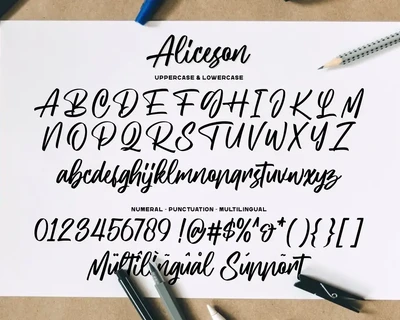 Aliceson
UPPERCASE & LOWERCASE
ABCDEFGHIJKLM
NOPQRSTUVWXYZ
abcdefghijklmnopqrstuvwxyz
NUMERAL - PUNCTUATION - MULTILINGUAL
0123456789 !@#$%^&*( ){ }[ ]
Mültîlìñgûål Súppõrt